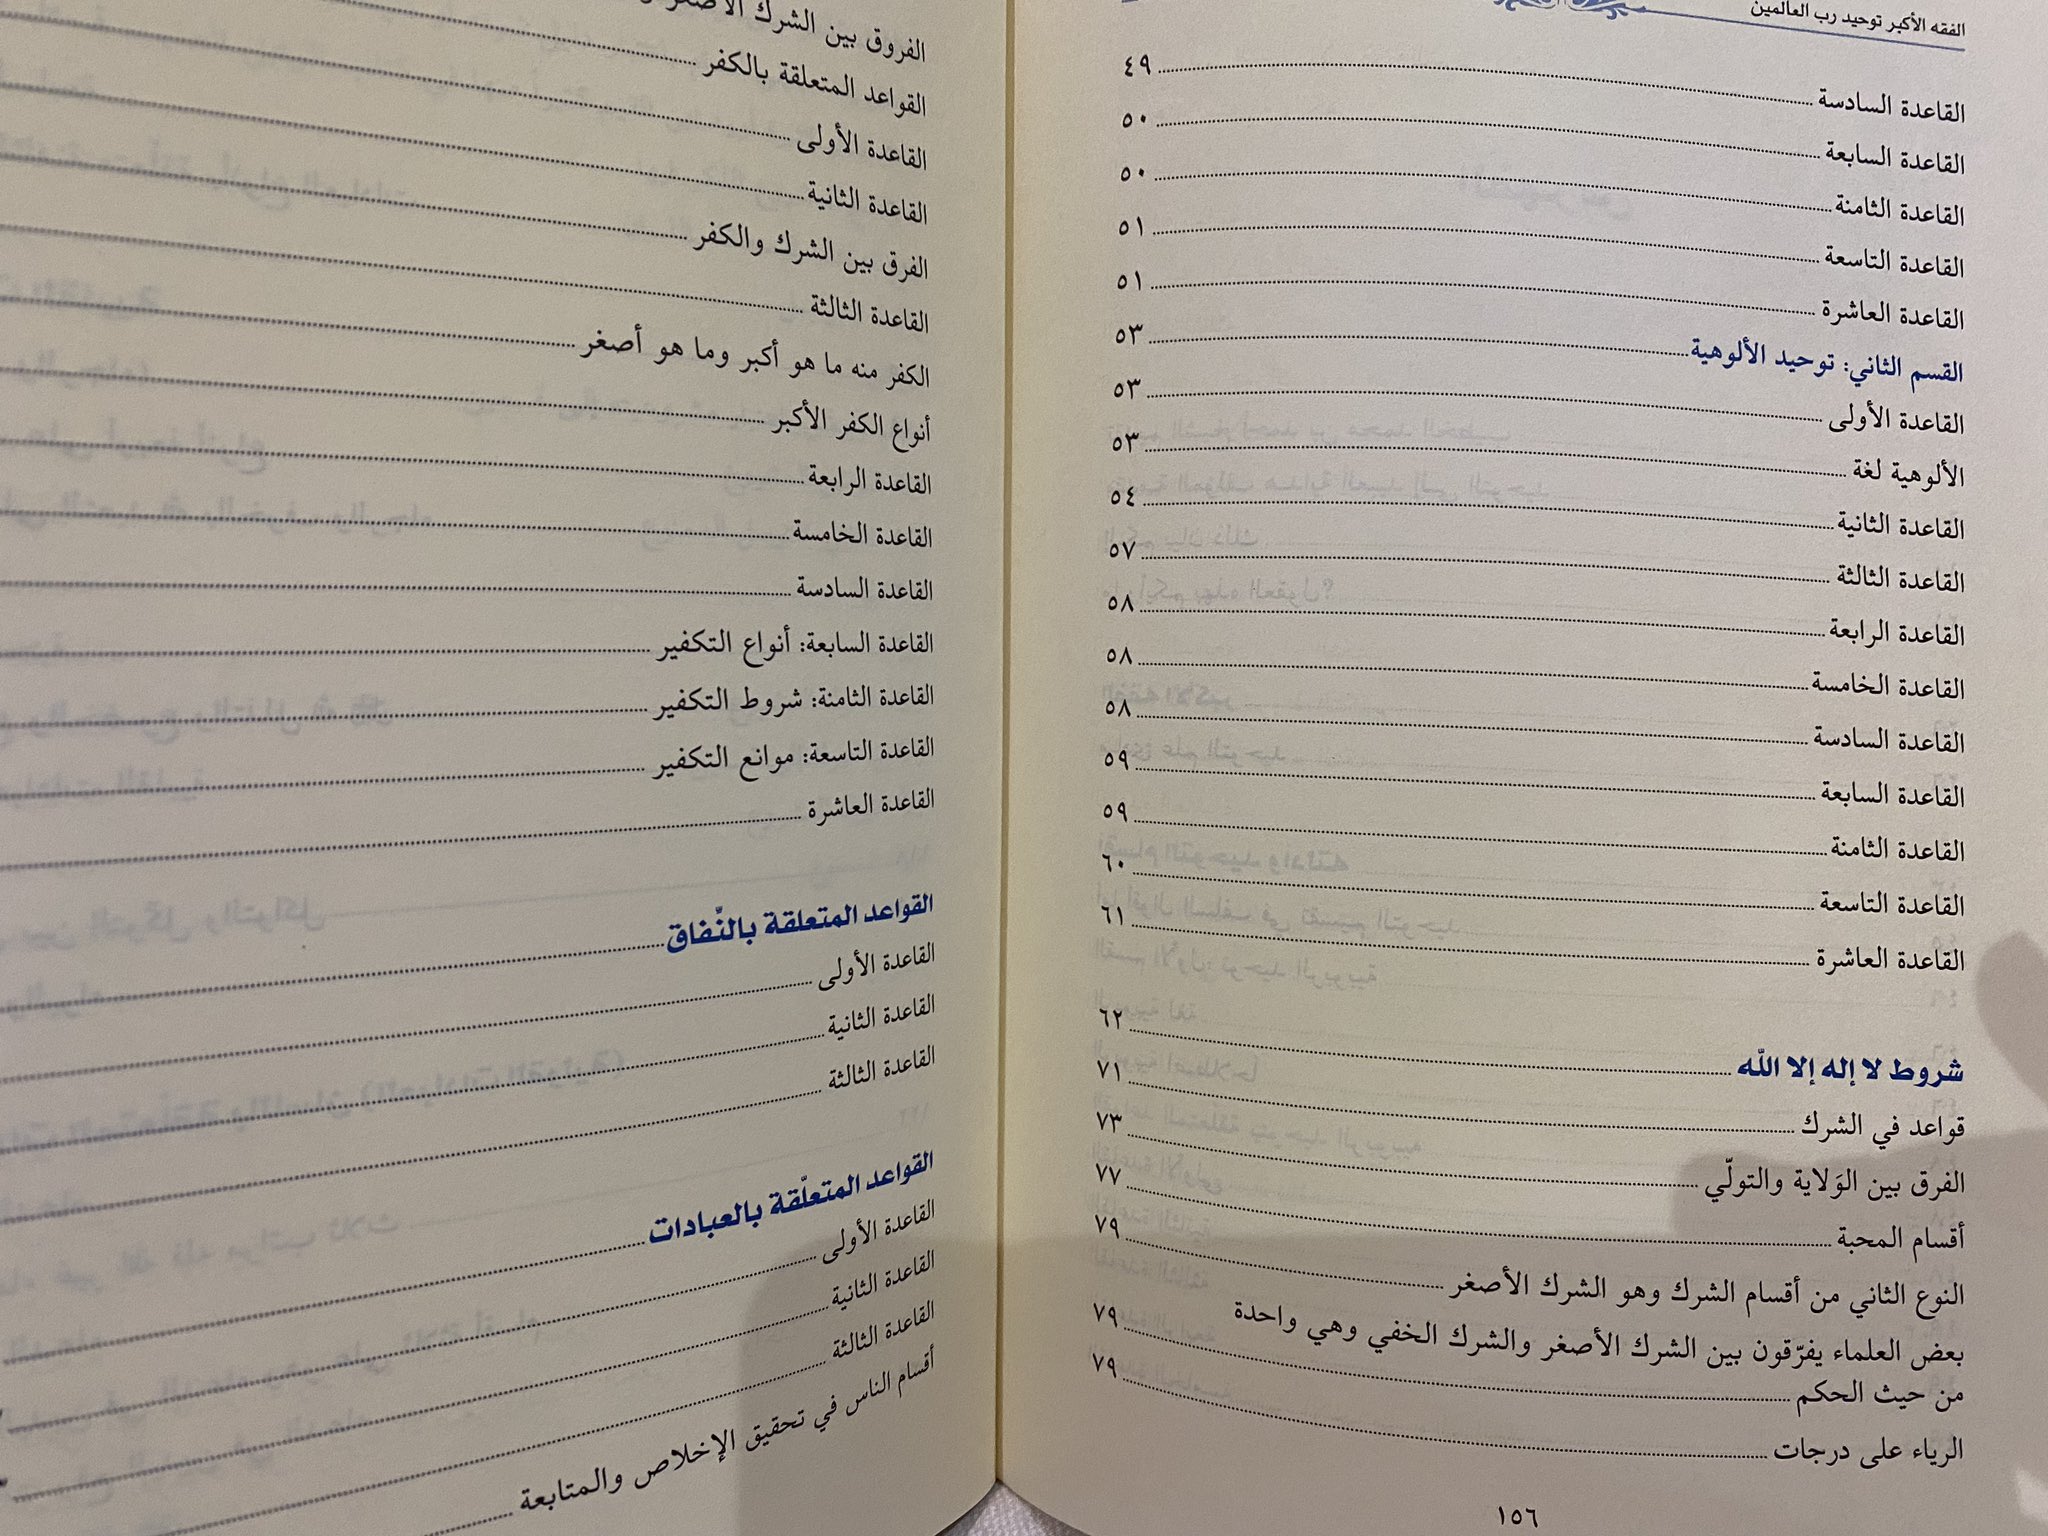 الفقه الأكبر توحيد رب العالمين
القاعدة السادسة ٤٩
القاعدة السابعة ٥٠
القاعدة الثامنة ٥٠
القاعدة التاسعة ٥١
القاعدة العاشرة ٥١
القسم الثاني: توحيد الألوهية ٥٣
القاعدة الأولى ٥٣
الألوهية لغة ٥٣
القاعدة الثانية ٥٤
القاعدة الثالثة ٥٧
القاعدة الرابعة ٥٨
القاعدة الخامسة ٥٨
القاعدة السادسة ٥٨
القاعدة السابعة ٥٩
القاعدة الثامنة ٥٩
القاعدة التاسعة ٦٠
القاعدة العاشرة ٦١
شروط لا إله إلا الله ٦٢
قواعد في الشرك ٧١
الفرق بين الوَلاية والتولّي ٧٣
أقسام المحبة ٧٧
النوع الثاني من أقسام الشرك وهو الشرك الأصغر ٧٩
بعض العلماء يفرّقون بين الشرك الأصغر والشرك الخفي وهي واحدة
من حيث الحكم ٧٩
الرياء على درجات ٧٩
١٥٦
الفروق بين الشرك الأصغر
القواعد المتعلقة بالكفر
القاعدة الأولى
القاعدة الثانية
الفرق بين الشرك والكفر
القاعدة الثالثة
الكفر منه ما هو أكبر وما هو أصغر
أنواع الكفر الأكبر
القاعدة الرابعة
القاعدة الخامسة
القاعدة السادسة
القاعدة السابعة: أنواع التكفير
القاعدة الثامنة: شروط التكفير
القاعدة التاسعة: موانع التكفير
القاعدة العاشرة
القواعد المتعلقة بالنِّفاق
القاعدة الأولى
القاعدة الثانية
القاعدة الثالثة
القواعد المتعلّقة بالعبادات
القاعدة الأولى
القاعدة الثانية
القاعدة الثالثة
أقسام الناس في تحقيق الإخلاص والمتابعة